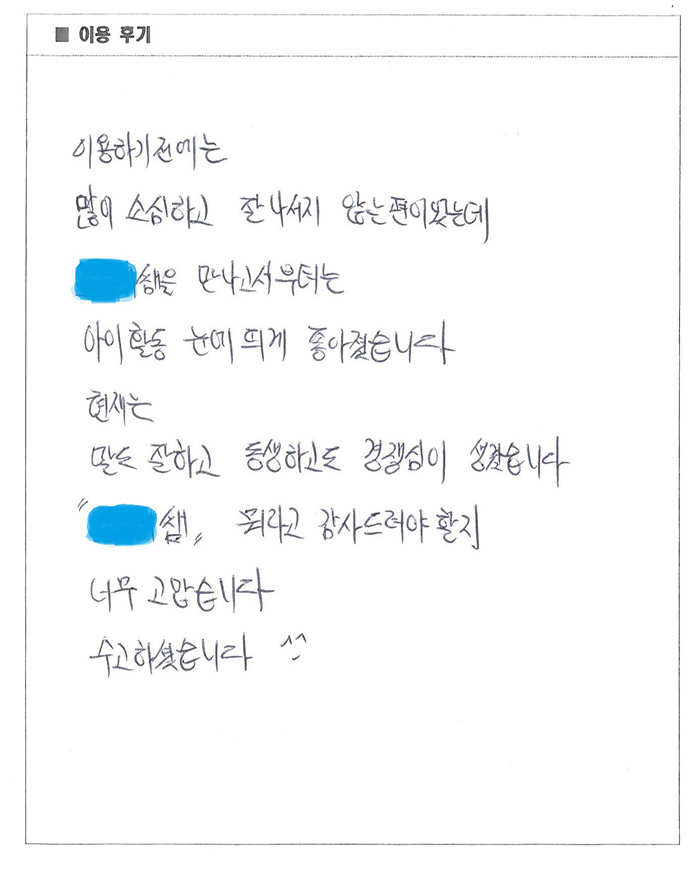 ■ 이용 후기
이용하기전에는
많이 소심하고 잘 나서지 않는편이었는데
샘을 만나고서부터는
아이활동 눈에 띄게 좋아졌습니다
현재는
말도 잘하고 동생하고도 경쟁심이 생겼습니다
" 쌤" 뭐라고 감사드려야할지
너무 고맙습니다
수고하셨습니다 ^^